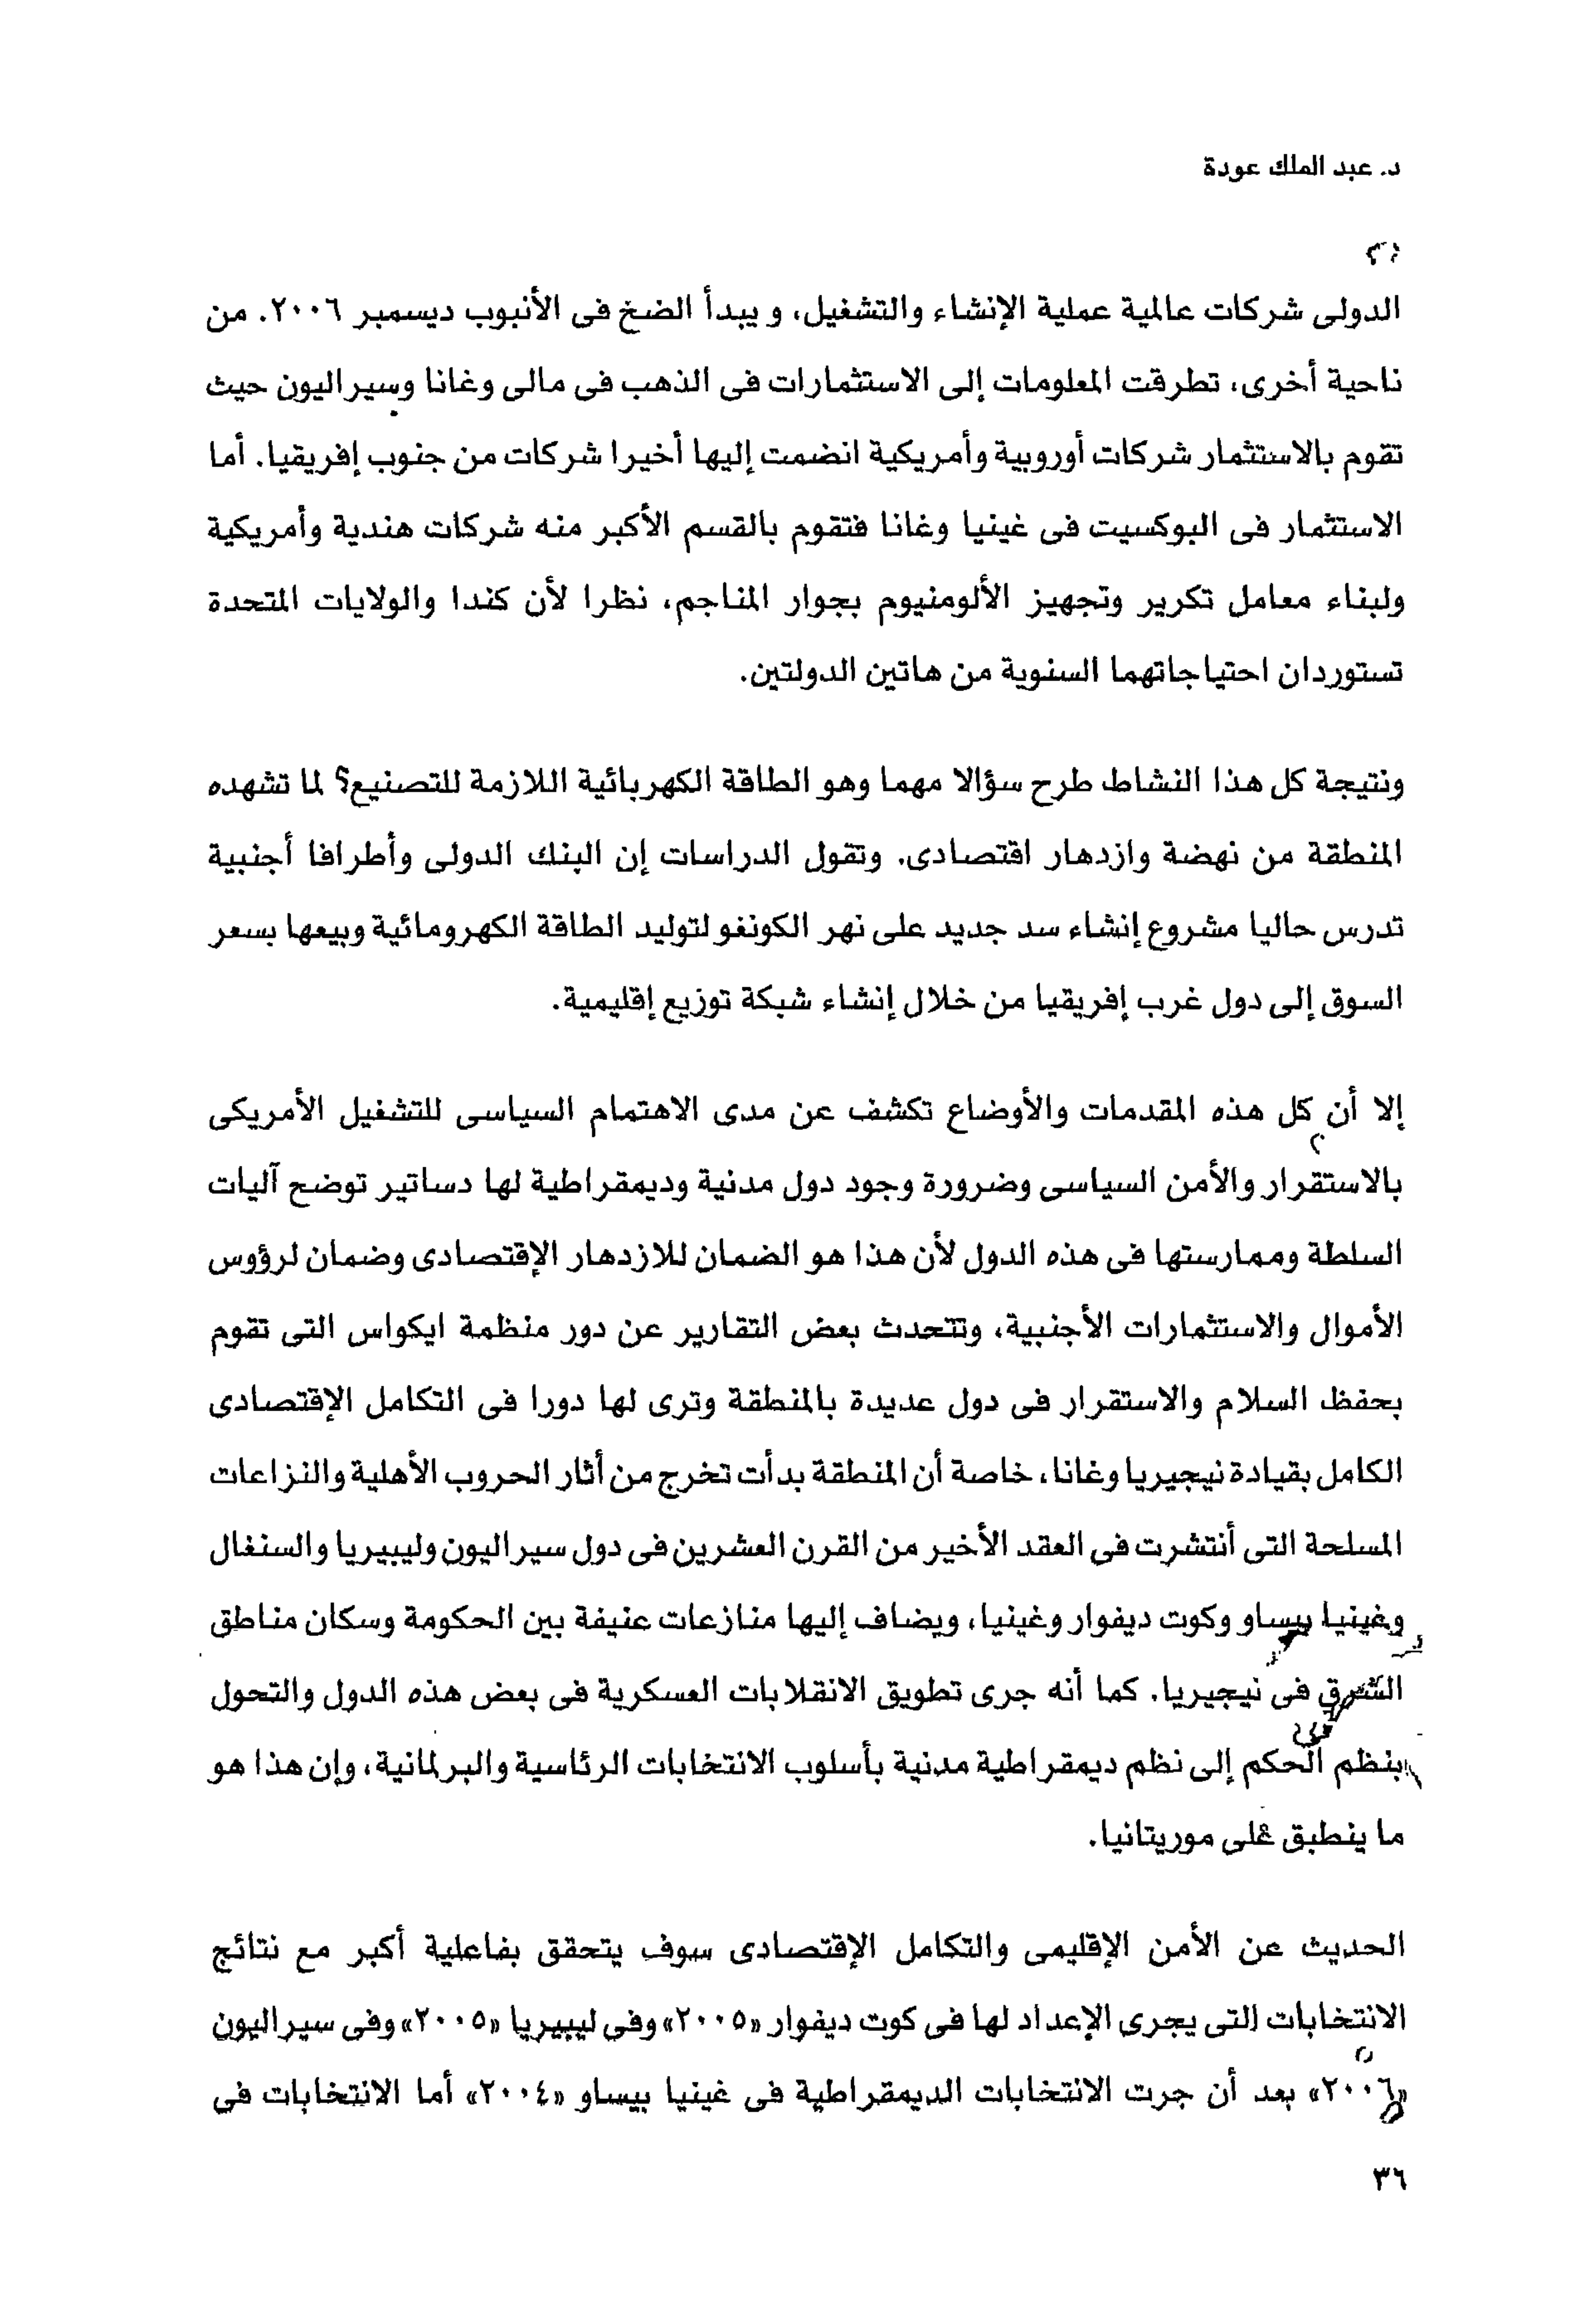 د. عبد الملك عودة
الدولى شركات عالمية عملية الإنشاء والتشغيل، و يبدأ الضخ فى الأنبوب ديسمبر ٢٠٠٦. من
ناحية أخرى، تطرقت المعلومات إلى الاستثمارات فى الذهب فى مالى وغانا وسيراليون حيث
تقوم بالاستثمار شركات أوروبية وأمريكية انضمت إليها أخيرا شركات من جنوب إفريقيا. أما
الاستثمار فى البوكسيت فى غينيا وغانا فتقوم بالقسم الأكبر منه شركات هندية وأمريكية
ولبناء معامل تكرير وتجهيز الألومنيوم بجوار المناجم، نظرا لأن كندا والولايات المتحدة
تستوردان احتياجاتهما السنوية من هاتين الدولتين.
ونتيجة كل هذا النشاط طرح سؤالا مهما وهو الطاقة الكهربائية اللازمة للتصنيع؟ لما تشهده
المنطقة من نهضة وازدهار اقتصادى. وتقول الدراسات إن البنك الدولى وأطرافا أجنبية
تدرس حاليا مشروع إنشاء سد جديد على نهر الكونغو لتوليد الطاقة الكهرومائية وبيعها بسعر
السوق إلى دول غرب إفريقيا من خلال إنشاء شبكة توزيع إقليمية.
إلا أن كل هذه المقدمات والأوضاع تكشف عن مدى الاهتمام السياسى للتشغيل الأمريكى
بالاستقرار والأمن السياسى وضرورة وجود دول مدنية وديمقراطية لها دساتير توضح آليات
السلطة وممارستها فى هذه الدول لأن هذا هو الضمان للازدهار الإقتصادى وضمان لرؤوس
الأموال والاستثمارات الأجنبية، وتتحدث بعض التقارير عن دور منظمة ايكواس التى تقوم
بحفظ السلام والاستقرار فى دول عديدة بالمنطقة وترى لها دورا فى التكامل الإقتصادى
الكامل بقيادة نيجيريا وغانا، خاصة أن المنطقة بدأت تخرج من أثار الحروب الأهلية والنزاعات
المسلحة التى أنتشرت فى العقد الأخير من القرن العشرين فى دول سيراليون وليبيريا والسنغال
وغينيا بيساو وكوت ديفوار وغينيا، ويضاف إليها منازعات عنيفة بين الحكومة وسكان مناطق
الشرق فى نيجيريا. كما أنه جرى تطويق الانقلابات العسكرية فى بعض هذه الدول والتحول
بنظم الحكم إلى نظم ديمقراطية مدنية بأسلوب الانتخابات الرئاسية والبرلمانية، وإن هذا هو
ما ينطبق على موريتانيا.
الحديث عن الأمن الإقليمى والتكامل الإقتصادى سوف يتحقق بفاعلية أكبر مع نتائج
الانتخابات التى يجرى الإعداد لها فى كوت ديفوار «٢٠٠٥» وفى ليبيريا «٢٠٠٥» وفى سيراليون
«٢٠٠٦» بعد أن جرت الانتخابات الديمقراطية فى غينيا بيساو «٢٠٠٤» أما الانتخابات فى
٣٦